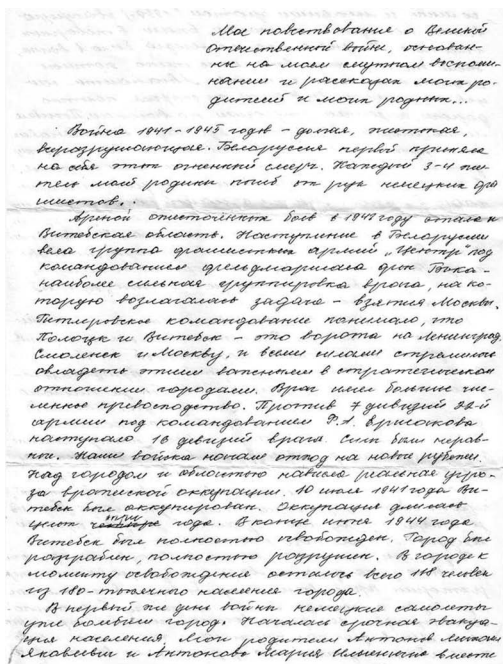 Мое повествование о Великой
Отечественной войне, основан-
ные на моем смутном воспоми-
нании и рассказах моих ро-
дителей и моих родных...
Война 1941-1945 годов - долгая, жестокая,
всеразрушающая. Белоруссия первой приняла
на себя этот огненный смерч. Каждый 3-й жи-
тель моей родины погиб от рук немецких фа
шистов.
Ареной ожесточённых боев в 1941 году стала и
Витебская область. Наступление в Белоруссии
вела группа фашистских армий „Центр" под
командованием фельдмаршала фон Бока -
наиболее сильная группировка врага, на ко-
торую возлагалась задача - взятия Москвы.
Гитлеровское командование понимало, что
Полоцк и Витебск - это ворота на Ленинград,
Смоленск и Москву, и всеми силами стремилось
овладеть этими важными в стратегическом
отношении городами. Враг имел большое чис-
ленное превосходство. Против 7 дивизий 22-й
армии под командованием Ф.А. Ершакова
наступало 16 дивизий врага. Силы были нерав-
ны. Наши войска начали отход на новые рубежи.
Над городом и областью нависла реальная угро-
за вражеской оккупации. 10 июля 1941 года Ви-
тебск был оккупирован. Оккупация длилась
три года. В конце июня 1944 года
Витебск был полностью освобожден. Город был
разграблен, полностью разрушен. В городе к
моменту освобождения осталось всего 118 человек
из 180-тысячного населения города.
В первый же день войны немецкие самолеты
уже бомбили город. Началась срочная эвакуа-
ция населения. Мои родители Антонов Михаил
Яковлевич и Антонова Мария Ильинична вместе